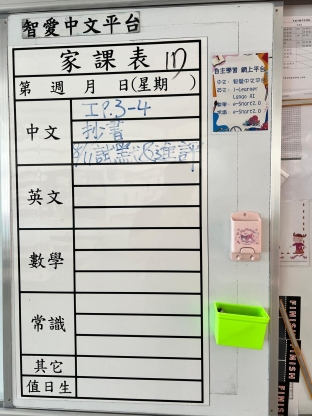 智愛中文平台
家課表 1D
第 週 月 日(星期 )
中文
工P.3-4
抄書
英文
數學
常識
其它
值日生
自主學習 網上平台
中文: 智愛中文平台
英文: i-Learner
數學: e-Smart2.0
常識: e-Smart2.0
FINISH
FINISH